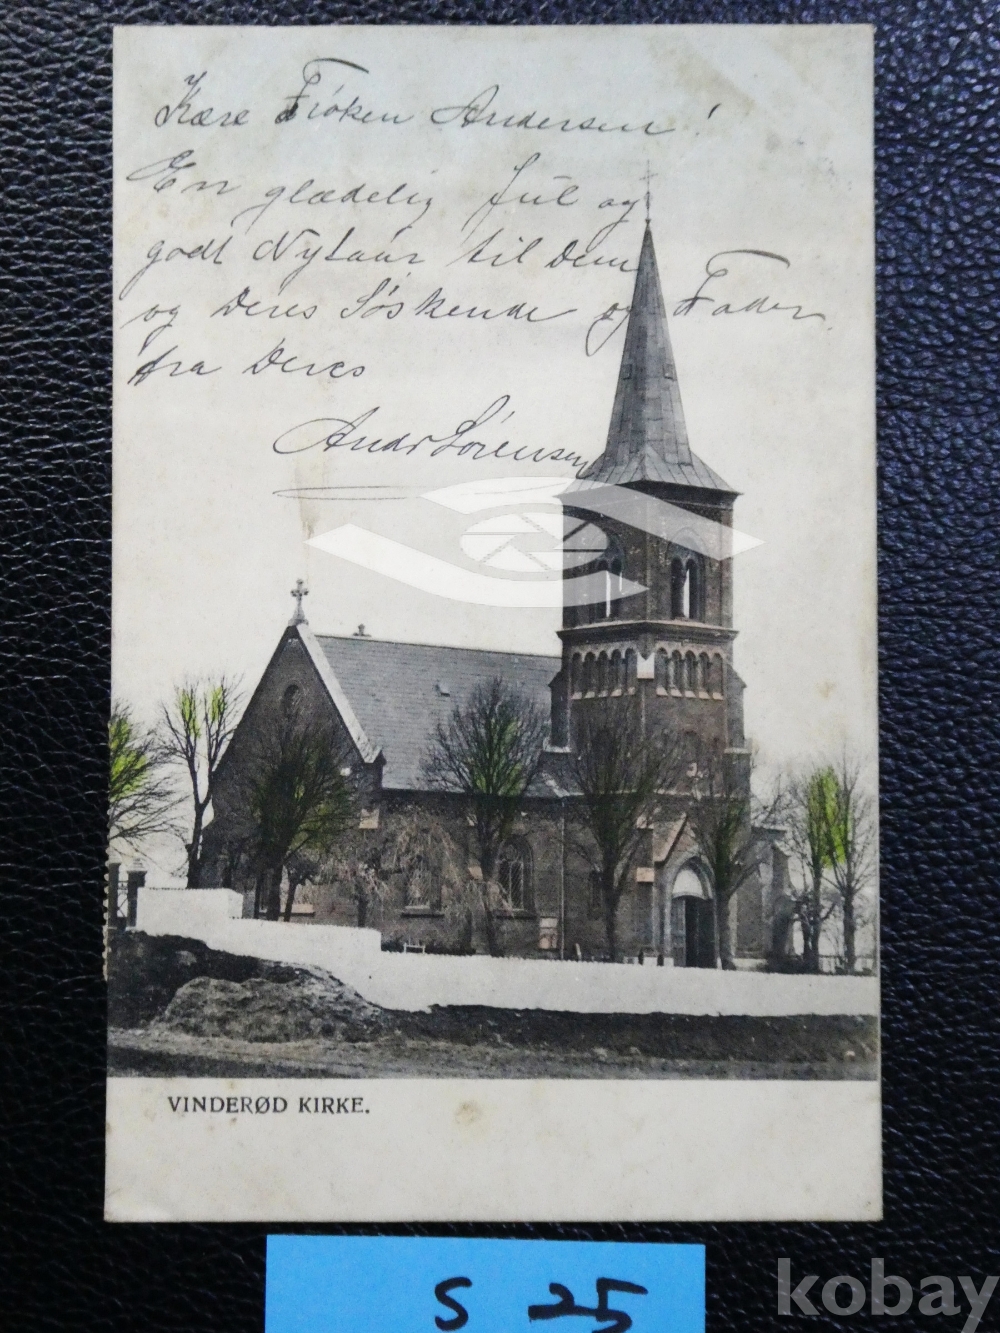 Kære Frøken Andersen!
En glædelig Jul og
godt Nytaar til Dem
og Deres Søskende og Fader
fra Deres
Andr Sørensen
VINDERØD KIRKE.
S 25
kobay